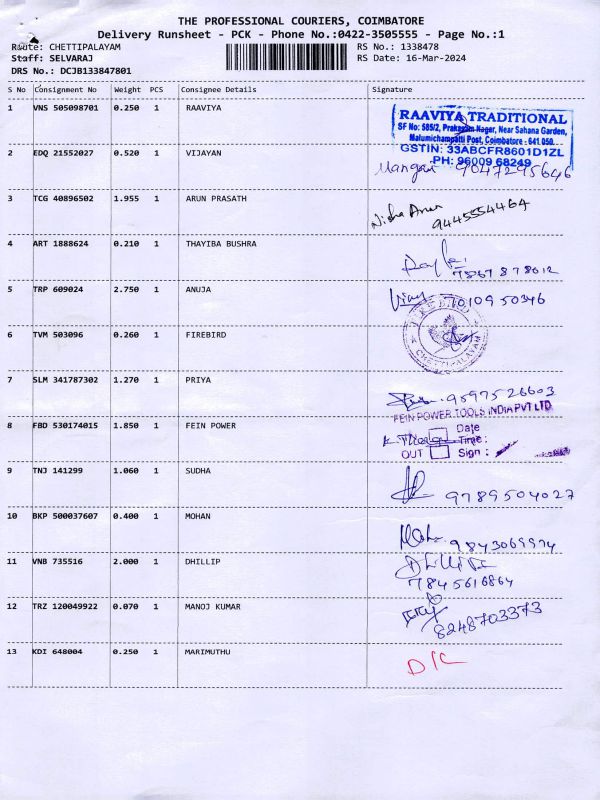 THE PROFESSIONAL COURIERS, COIMBATORE
Delivery Runsheet - PCK - Phone No.:0422-3505555 - Page No.:1
Route: CHETTIPALAYAM RS No.: 1338478
Staff: SELVARAJ RS Date: 16-Mar-2024
DRS No.: DCJB133847801
S No Consignment No Weight PCS Consignee Details Signature
1 VNS 505098701 0.250 1 RAAVIYA
RAAVIYA TRADITIONAL
SF No: 585/2, Prakasam Nagar, Near Sahana Garden,
Malumichampatti Post, Coimbatore - 641 050.
GSTIN: 33ABCFR8601D1ZL
PH: 96009 68249
2 EDQ 21552027 0.520 1 VIJAYAN 9047295646
3 TCG 40896502 1.955 1 ARUN PRASATH 9445554464
4 ART 1888624 0.210 1 THAYIBA BUSHRA 7867878012
5 TRP 609024 2.750 1 ANUJA Vijay 7010950346
6 TVM 503096 0.260 1 FIREBIRD
FIREBIRD
CHETTIPALAYAM
7 SLM 341787302 1.270 1 PRIYA 9597526603
8 FBD 530174015 1.850 1 FEIN POWER
FEIN POWER TOOLS INDIA PVT LTD
Date
Time :
OUT Sign :
9 TNJ 141299 1.060 1 SUDHA 9789504027
10 BKP 500037607 0.400 1 MOHAN 9843069974
11 VNB 735516 2.000 1 DHILLIP Dhillip
7845616864
12 TRZ 120049922 0.070 1 MANOJ KUMAR 8248703373
13 KDI 648004 0.250 1 MARIMUTHU D/C